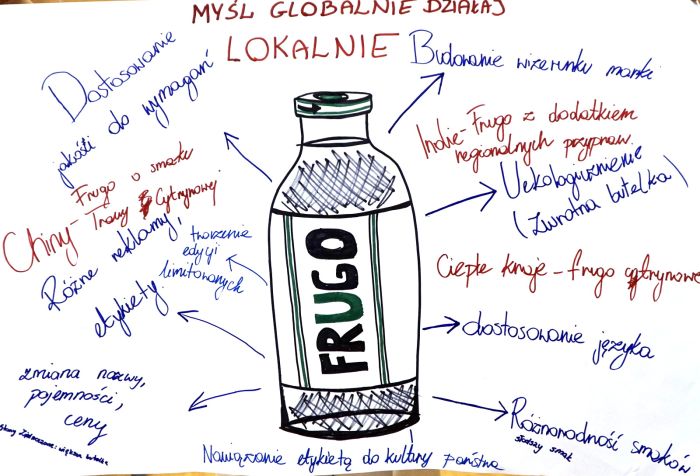 MYŚL GLOBALNIE DZIAŁAJ
LOKALNIE
Dostosowanie
jakości do wymagań
Frugo o smaku
Chiny - Trawy Cytrynowej
Różne reklamy,
etykiety
tworzenie
edycji
limitowanych
zmiana nazwy,
pojemności,
ceny
Stany Zjednoczone: większa butelka
FRUGO
Budowanie wizerunku marki
Indie - Frugo z dodatkiem
regionalnych przypraw
Uekologicznienie
(Zwrotna butelka)
Ciepłe kraje - frugo cytrynowe
dostosowanie języka
Różnorodność smaków
słodszy smak
Nawiązanie etykietą do kultury państwa